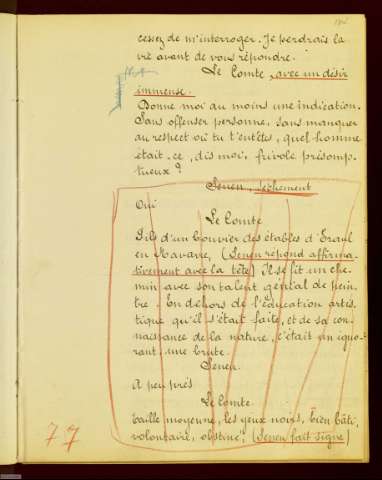 cessez de m'interroger. Je perdrais la
vie avant de vous répondre.
Le Comte, avec un désir
immense.
Donne moi au moins une indication.
Sans offenser personne, sans manquer
au respect où tu t'entêtes, quel homme
était-ce, dis moi, frivole présomp-
tueux?
Senen, sèchement
Oui
Le Comte
Fils d'un bouvier des étables d'Eraul
en Navarre, (Senen repond affirma-
tivement avec la tête) Il se fit un che-
min avec son talent génial de pein-
tre. En dehors de l'éducation artis-
tique qu'il s'était faite, et de sa con-
naissance de la nature, c'était un igno-
rant, une brute.
Senen.
A peu près
Le Comte.
taille moyenne, les yeux noirs, bien bâti,
volontaire, obstiné, (Senen fait signe)
77